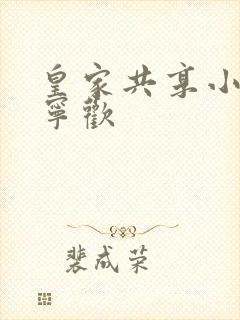 皇家共享小
寧歡
裴成荣